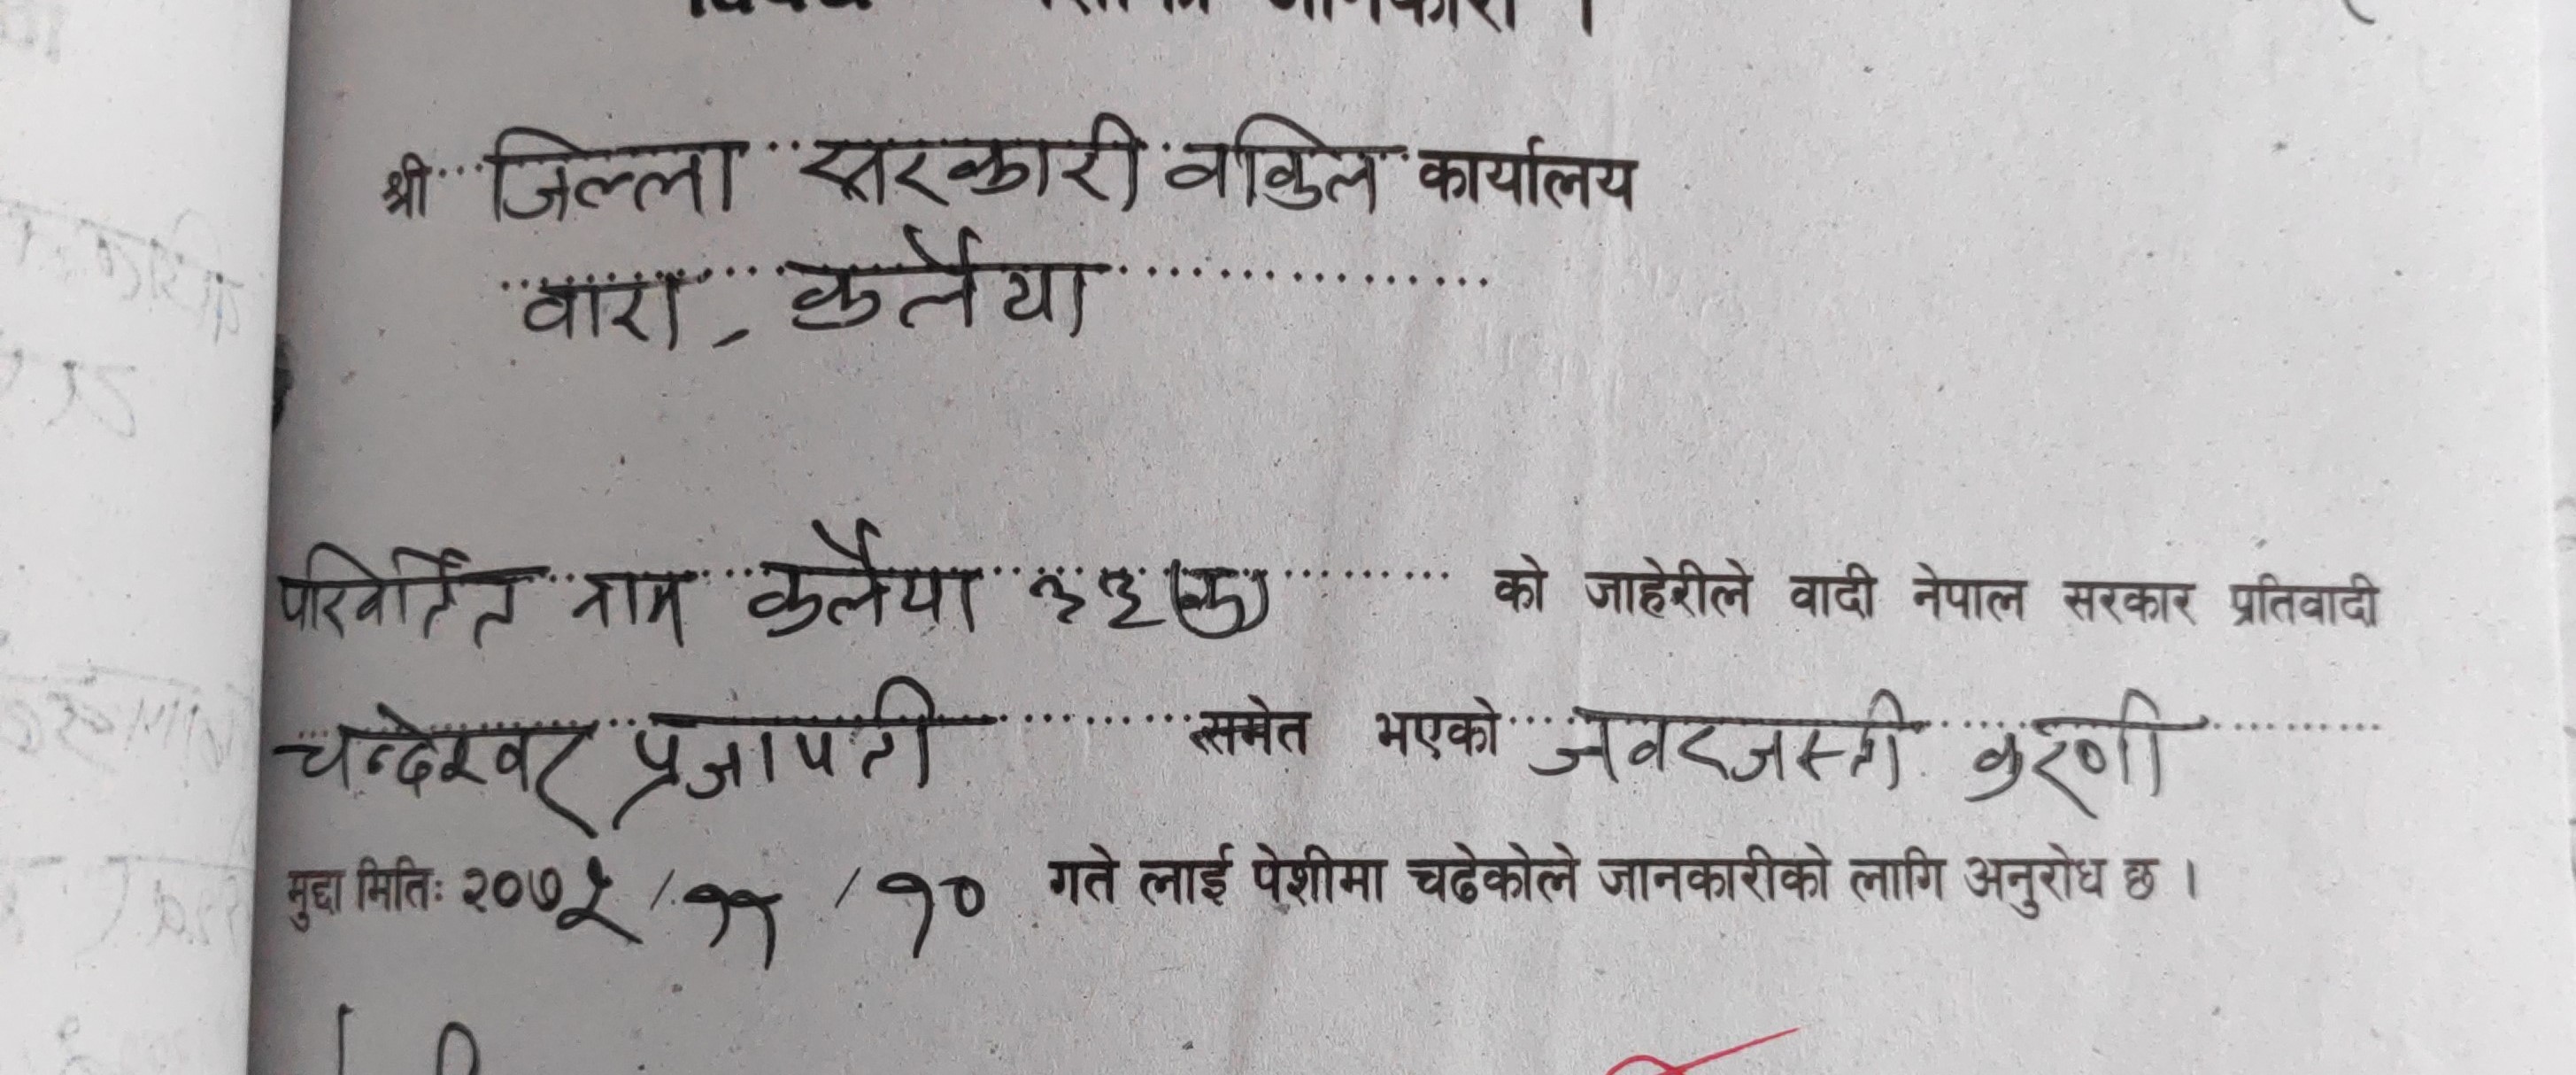 जानकारी ।
श्री जिल्ला सरकारी वकिल कार्यालय
वारा, कलैया
परिवर्तित नाम कलैया ३३(क) को जाहेरीले वादी नेपाल सरकार प्रतिवादी
चन्देश्वर प्रजापती समेत भएको जवरजस्ती करणी
मुद्दा मितिः २०७५/११/१० गते लाई पेशीमा चढेकोले जानकारीको लागि अनुरोध छ ।